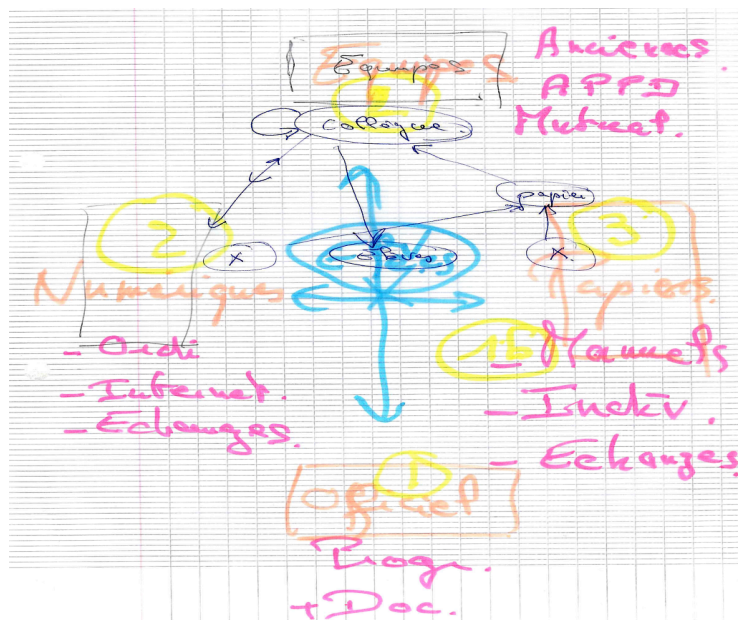 Equipes
Equipes
Anciennes
APPD
Mutuat.
collègue
papier
2
3
x
élèves
x
Numériques
Papiers
- Ordi
- Internet.
- Echanges.
1b
- Manuels
- Echanges
1
Officiel
Progr.
+ Doc.